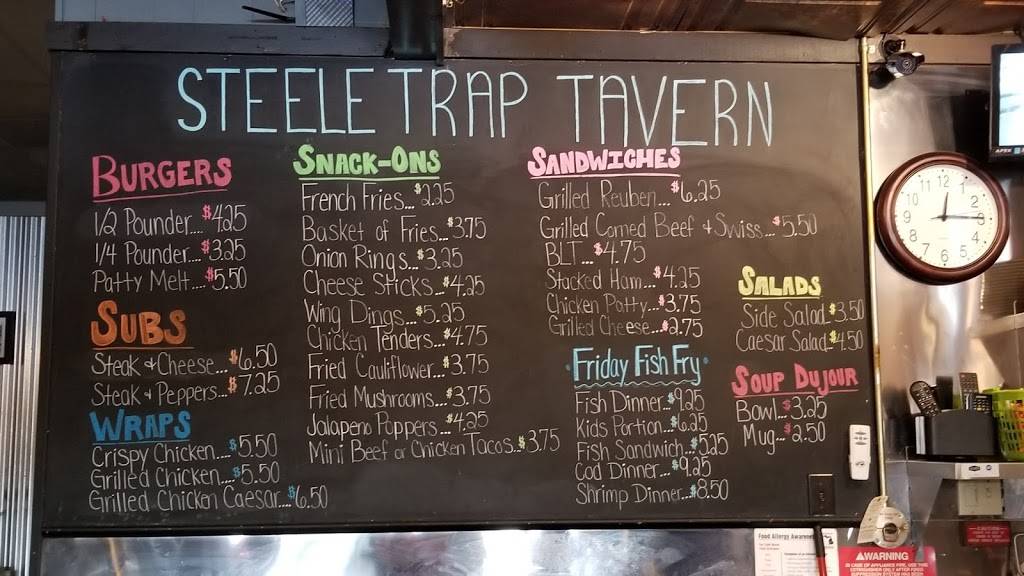 STEELE TRAP TAVERN
BURGERS
1/2 Pounder...$4.25
1/4 Pounder...$3.25
Patty Melt....$5.50
SUBS
Steak & Cheese...$6.50
Steak & Peppers...$7.25
WRAPS
Crispy Chicken....$5.50
Grilled Chicken...$5.50
Grilled Chicken Caesar..$6.50
SNACK-ONS
French Fries...$2.25
Basket of Fries...$3.75
Onion Rings...$3.25
Cheese Sticks...$4.25
Wing Dings...$5.25
Chicken Tenders...$4.75
Fried Cauliflower...$3.75
Fried Mushrooms...$3.75
Jalapeno Poppers...$4.25
Mini Beef or Chicken Tacos..$3.75
SANDWICHES
Grilled Reuben....$6.25
Grilled Corned Beef & Swiss...$5.50
BLT...$4.75
Stacked Ham...$4.25
Chicken Patty...$3.75
Grilled Cheese...$2.75
Friday Fish Fry
Fish Dinner...$9.25
Kids Portion...$6.25
Fish Sandwich...$5.25
Cod Dinner...$9.25
Shrimp Dinner...$8.50
SALADS
Side Salad..$3.50
Caesar Salad..$4.50
SOUP DUJOUR
Bowl...$3.25
Mug...$2.50
12
1
2
3
4
5
6
7
8
9
10
11
Food Allergy Awareness
WARNING
IN CASE OF APPLIANCE FIRE, USE THIS
EXTINGUISHER ONLY AFTER FIXED
SUPPRESSION SYSTEM HAS BEEN